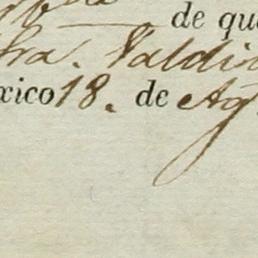 de qu
fra. Valdi
xico 18. de Ag